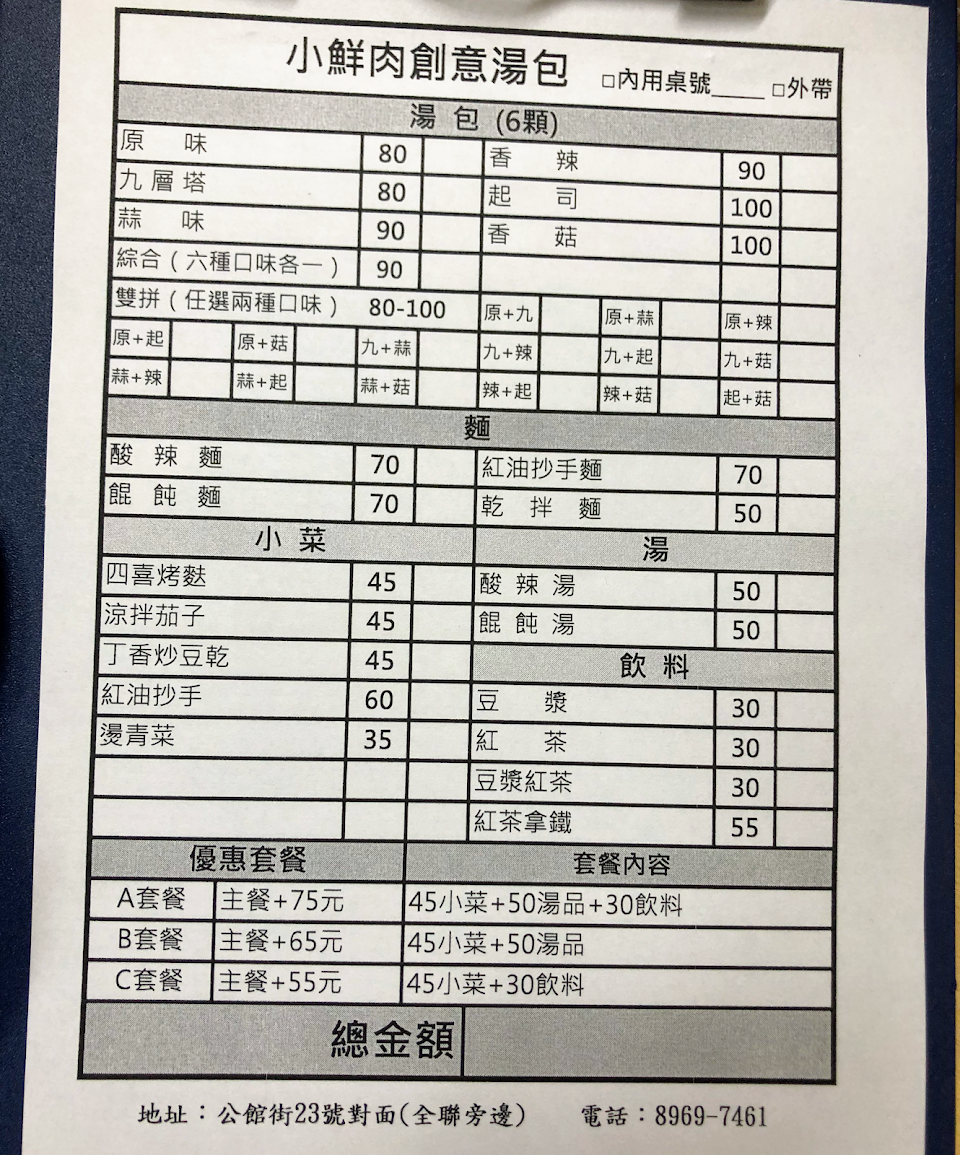 小鮮肉創意湯包 □內用桌號____ □外帶
湯 包 (6顆)
原 味 80 香 辣 90
九 層 塔 80 起 司 100
蒜 味 90 香 菇 100
綜合(六種口味各一) 90
雙拼(任選兩種口味) 80-100 原+九 原+蒜 原+辣
原+起 原+菇 九+蒜 九+辣 九+起 九+菇
蒜+辣 蒜+起 蒜+菇 辣+起 辣+菇 起+菇
麵
酸 辣 麵 70 紅油抄手麵 70
餛 飩 麵 70 乾 拌 麵 50
小 菜 湯
四喜烤麩 45 酸 辣 湯 50
涼拌茄子 45 餛 飩 湯 50
丁香炒豆乾 45 飲 料
紅油抄手 60 豆 漿 30
燙青菜 35 紅 茶 30
豆漿紅茶 30
紅茶拿鐵 55
優惠套餐 套餐內容
A套餐 主餐+75元 45小菜+50湯品+30飲料
B套餐 主餐+65元 45小菜+50湯品
C套餐 主餐+55元 45小菜+30飲料
總金額
地址：公館街23號對面(全聯旁邊) 電話：8969-7461